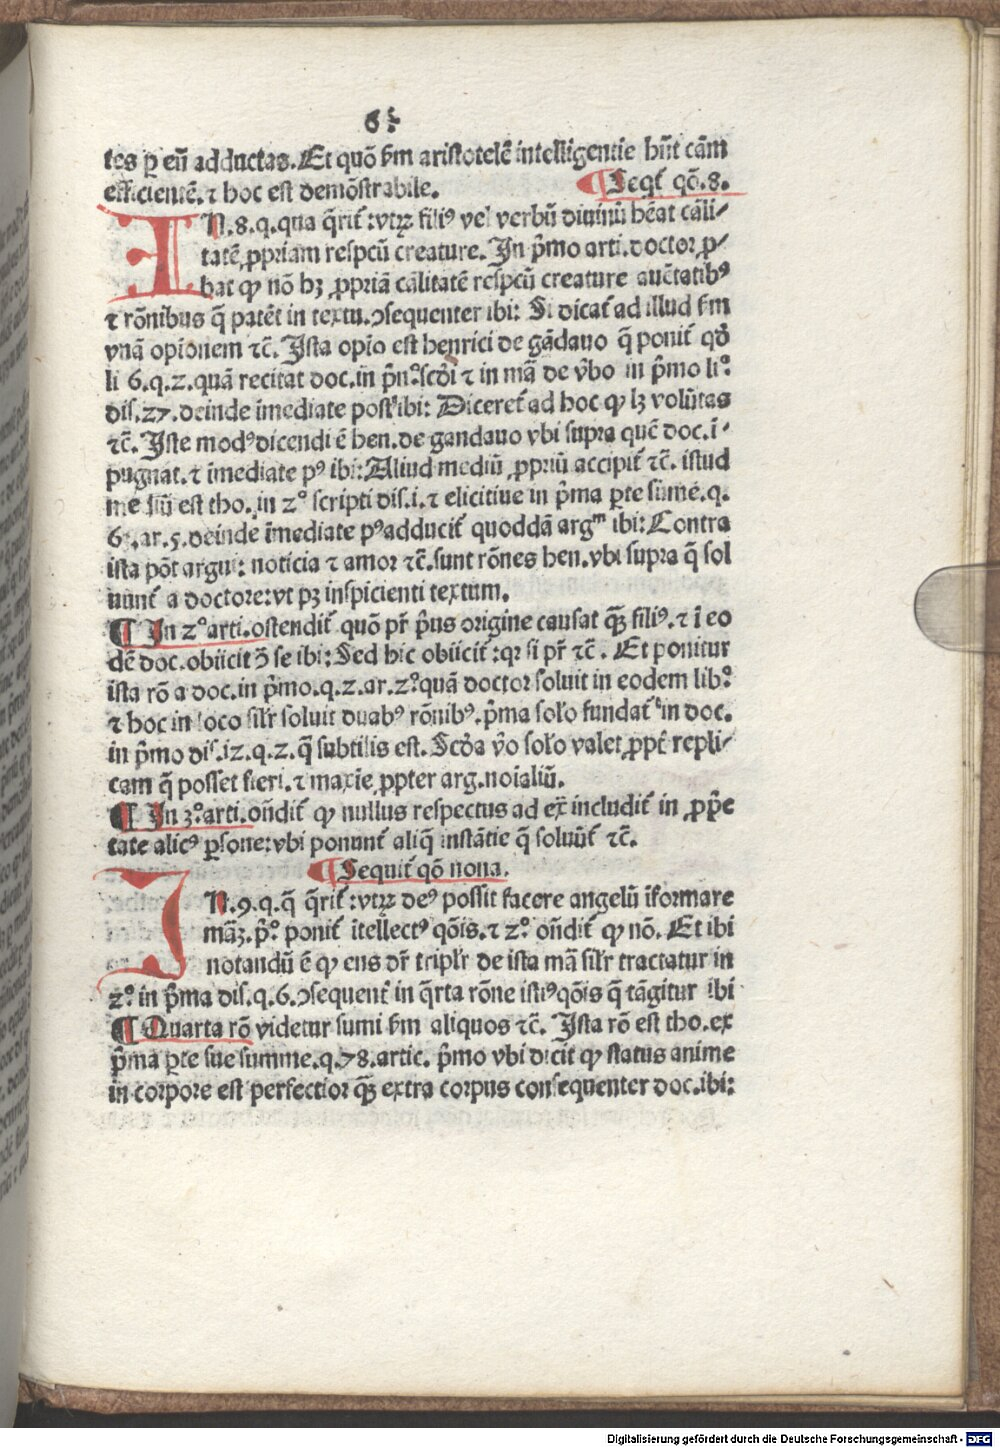 6:
tes ꝑ eū adductas. Et quō ẜm aristotelē intelligentie hn̄t cām
efficientē. ⁊ hoc est demōstrabile. ¶ Seqt̄ qō. 8.
IN. 8. q. qua q̄rit̄: vtꝝ filiꝰ vel verbū diuinū hēat cāli⸗
tatē ꝓpriam respcū creature. In p̄mo arti. doctor ꝓ⸗
bat ꝙ nō hꝫ ꝓpriā cālitatē respcū creature auc̄tatibꝰ
⁊ rōnibus q̄ patēt in textu. ↄsequenter ibi: Si dicat̄ ad illud ẜm
vnā opionem ⁊c̄. Ista opio est henrici de gādauo q̄ ponit̄ qd̄
li 6. q. 2. quā recitat doc. in p̄n.º scd̓i ⁊ in mā de v̓bo in p̄mo li.º
dis. 27. deinde īmediate post ibi: Diceret̄ ad hoc ꝙ lꝫ volūtas
⁊c̄. Iste modꝰ dicendi ē hen. de gandauo vbi supra quē doc. ī⸗
pugnat. ⁊ īmediate pꝰ ibi: Aliud mediū ꝓpriū accipit̄ ⁊c̄. istud
me siū est tho. in 2º scripti dis. i. ⁊ elicitiue in p̄ma ꝑte sūme. q.
6:. ar. 5. deinde īmediate pꝰ adducit̄ quoddā argᵐ ibi: Contra
ista pōt argui: noticia ⁊ amor ⁊c̄. sunt rōnes hen. vbi supra q̄ sol
uunt̄ a doctore: vt pꝫ inspicienti textum.
¶ In 2º arti. ostendit̄ quō pr̄ p̄us origine causat qꝫ̄ filiꝰ. ⁊ ī eo
dē doc. obiicit ↄ̄ se ibi: Sed hic obiicit̄: qꝛ si pr̄ ⁊c̄. Et ponitur
ista rō a doc. in p̄mo. q. 2. ar. 2.º quā doctor soluit in eodem lib.º
⁊ hoc in loco sil̓r soluit duabꝰ rōnibꝰ. p̄ma solo fundat̄ in doc.
in p̄mo dis. 12. q. 2. q̄ subtilis est. Scd̓a v̓o solo valet ꝓpt̄ repli⸗
cam q̄ posset fieri. ⁊ maxie ꝓpter arg. noialiū.
¶ In 3.º arti. on̄dit̄ ꝙ nullus respectus ad ex̄ includit̄ in ꝓp̄e
tate alicꝰ ꝑsone: vbi ponunt̄ aliq̄ instātie q̄ soluūt̄ ⁊c̄.
¶ Sequit̄ qō nona.
IN. 9. q. q̄ q̄rit̄: vtꝝ deꝰ possit facere angelū īformare
māꝫ. p̄.º ponit̄ itellectꝰ qōis. ⁊ 2.º on̄dit̄ ꝙ nō. Et ibi
notandū ē ꝙ ens dr̄ tripl̓r de ista mā sil̓r tractatur in
2.º in p̄ma dis. q. 6. ↄsequent̄ in q̄rta rōne istiꝰ qōis q̄ tāgitur ibi
¶ Quarta rō videtur sumi ẜm aliquos ⁊c̄. Ista rō est tho. ex
p̄ma ꝑte sue summe. q. 78. artic. p̄mo vbi dicit ꝙ status anime
in corpore est perfectior qꝫ̄ extra corpus consequenter doc. ibi:
Digitalisierung gefördert durch die Deutsche Forschungsgemeinschaft - DFG